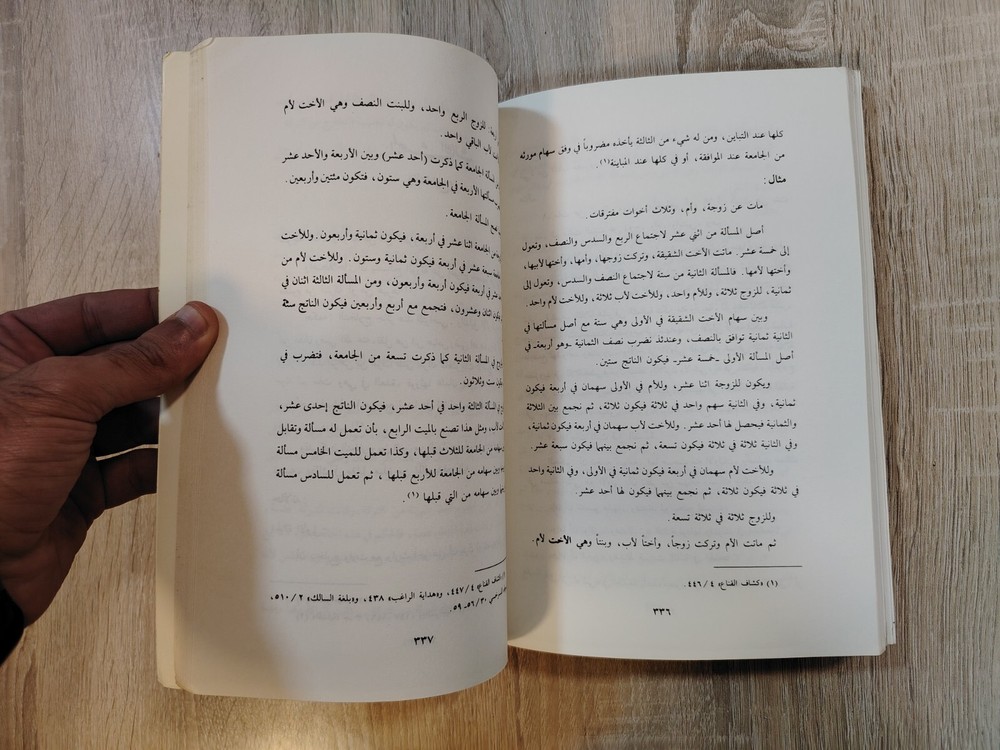 كلها عند التباين، ومن له شيء من الثالثة يأخذه مضروباً في وفق سهام مورثه
من الجامعة عند الموافقة، أو في كلها عند المباينة(١).
مثال:
مات عن زوجة، وأم، وثلاث أخوات مفترقات.
أصل المسألة من اثني عشر لاجتماع الربع والسدس والنصف، وتعول
إلى خمسة عشر. ماتت الأخت الشقيقة، وتركت زوجها، وأمها، وأختها لأبيها،
وأختها لأمها. فالمسألة الثانية من ستة لاجتماع النصف والسدس، وتعول إلى
ثمانية، للزوج ثلاثة، وللأم واحد، وللأخت لأب ثلاثة، وللأخت لأم واحد.
وبين سهام الأخت الشقيقة في الأولى وهي ستة مع أصل مسألتها في
الثانية ثمانية توافق بالنصف، وعندئذ نضرب نصف الثمانية ـ وهو أربعة ـ في
أصل المسألة الأولى ـ خمسة عشر ـ فيكون الناتج ستين.
ويكون للزوجة اثنا عشر، وللأم في الأولى سهمان في أربعة فيكون
ثمانية، وفي الثانية سهم واحد في ثلاثة فيكون ثلاثة، ثم نجمع بين الثلاثة
والثمانية فيحصل لها أحد عشر. وللأخت لأب سهمان في أربعة فيكون ثمانية،
وفي الثانية ثلاثة في ثلاثة فيكون تسعة، ثم نجمع بينهما فيكون سبعة عشر.
وللأخت لأم سهمان في أربعة فيكون ثمانية في الأولى، وفي الثانية واحد
في ثلاثة فيكون ثلاثة، ثم نجمع بينهما فيكون لها أحد عشر.
وللزوج ثلاثة في ثلاثة تسعة.
ثم ماتت الأم وتركت زوجاً، وأختاً لأب، وبنتاً وهي الأخت لأم.
(١) «كشاف القناع» ٤/ ٤٤٦.
٣٣٦
للزوج الربع واحد، وللبنت النصف وهي الأخت لأم
لأب الباقي واحد.
المسألة الجامعة كما ذكرت (أحد عشر) وبين الأربعة والأحد عشر
مسألتها الأربعة في الجامعة وهي ستون، فتكون مئتين وأربعين.
تصح المسألة الجامعة.
الجامعة اثنا عشر في أربعة، فيكون ثمانية وأربعون. وللأخت
سبعة عشر في أربعة فيكون ثمانية وستون. وللأخت لأم من
عشر في أربعة فيكون أربعة وأربعون، ومن المسألة الثالثة اثنان في
اثنان وعشرون، فتجمع مع أربع وأربعين فيكون الناتج ستة
في المسألة الثانية كما ذكرت تسعة من الجامعة، فتضرب في
ست وثلاثون.
في المسألة الثالثة واحد في أحد عشر، فيكون الناتج إحدى عشر،
ومثل هذا تصنع بالميت الرابع، بأن تعمل له مسألة وتقابل
سهامه من الجامعة للثلاث قبلها، وكذا تعمل للميت الخامس مسألة
سهامه من الجامعة للأربع قبلها، ثم تعمل للسادس مسألة
سهامه من التي قبلها (١).
«كشاف القناع» ٤/ ٤٤٧، و«هداية الراغب» ٤٣٨، و«بلغة السالك» ٢/ ٥١٠،
٣٠/ ٥٦ ـ ٥٩.
٣٣٧